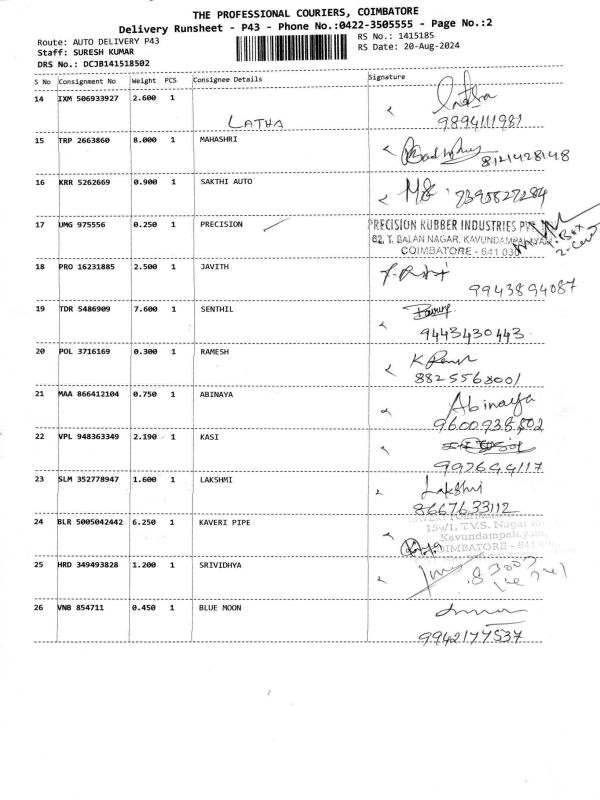 THE PROFESSIONAL COURIERS, COIMBATORE
Delivery Runsheet - P43 - Phone No.:0422-3505555 - Page No.:2
Route: AUTO DELIVERY P43
RS No.: 1415185
Staff: SURESH KUMAR
RS Date: 20-Aug-2024
DRS No.: DCJB141518502
S No Consignment No Weight PCS Consignee Details Signature
14 IXM 506933927 2.600 1
LATHA
9894111981
15 TRP 2663860 8.000 1 MAHASHRI
8121428148
16 KRR 5262669 0.900 1 SAKTHI AUTO
17 UMG 975556 0.250 1 PRECISION
PRECISION RUBBER INDUSTRIES PVT
62, T. BALAN NAGAR, KAVUNDAMPALAYAM
COIMBATORE - 641 030
18 PRO 16231885 2.500 1 JAVITH
9943894087
19 TDR 5486909 7.600 1 SENTHIL
9443430443
20 POL 3716169 0.300 1 RAMESH
21 MAA 866412104 0.750 1 ABINAYA
Abinaya
22 VPL 948363349 2.190 1 KASI
23 SLM 352778947 1.600 1 LAKSHMI
Lakshmi
8667633112
24 BLR 5005042442 6.250 1 KAVERI PIPE
159/1, T.V.S. Nagar
Kavundampalayam
COIMBATORE - 641
25 HRD 349493828 1.200 1 SRIVIDHYA
26 VNB 854711 0.450 1 BLUE MOON
9942177537